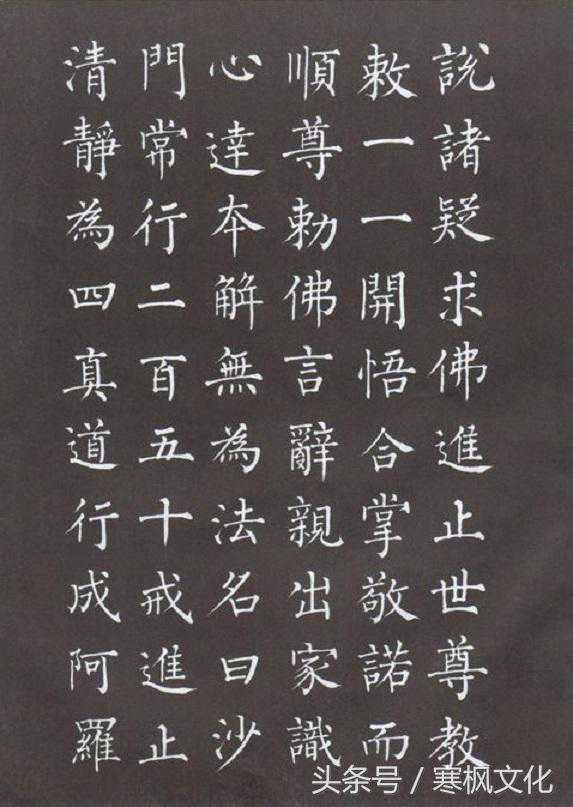 說諸疑求佛進止世尊教
敕一一開悟合掌敬諾而
順尊勅佛言辭親出家識
心達本解無為法名曰沙
門常行二百五十戒進止
清靜為四真道行成阿羅
头条号 / 寒枫文化